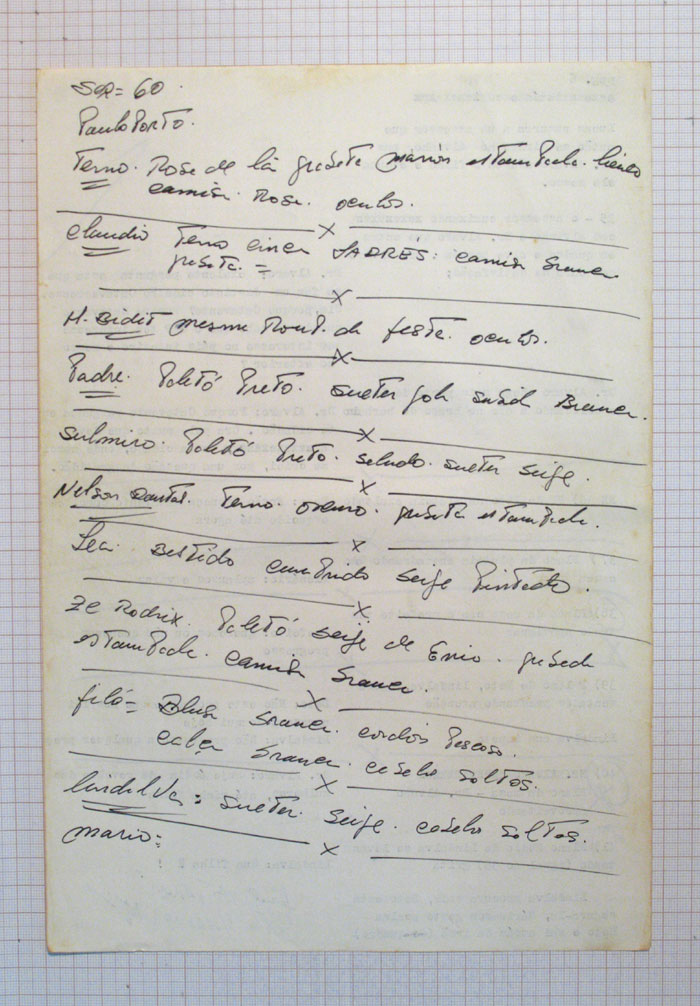 SEQ = 60.
Paulo Porto.
Terno. Rose de lã gravata marron estampada. lenço
camisa. Rose. oculos.
X
Claudio Terno cinza XADRES: camisa branca
gravata =
X
M. mesma Roup. da festa. oculos.
X
Padre. Paletó Preto. sueter gola Branca.
X
Paletó Preto. veludo. sueter beije.
X
Nelson Dantas. Terno. gravata estampada.
X
Lea. Bestido comprido beije Pintado.
X
Ze Rodrix. Paletó beije de Enio. gravata
estampada. camisa branca
X
filó = Blusa branca. cordão Pescoso.
calça branca. cabelo soltos.
X
lindalva: sueter. beije. cabelo soltos.
X
mario: